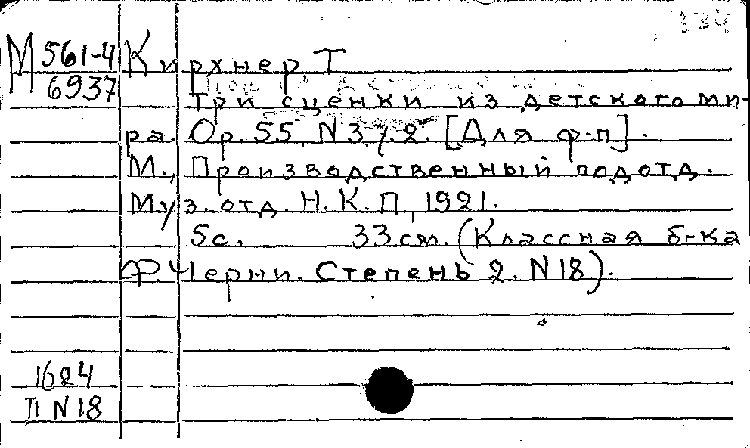 М 561-4
6937
Кирхнер Т
Три сценки из детского ми-
ра. Ор. 55, N 3 у. 2. [Для ф-п].
М., Производственный подотд.
Муз. отд. Н.К.П, 1921.
5с. 33см. (Классная б-ка
Ф. Черни. Степень 2. N 18).
1624
П N 18